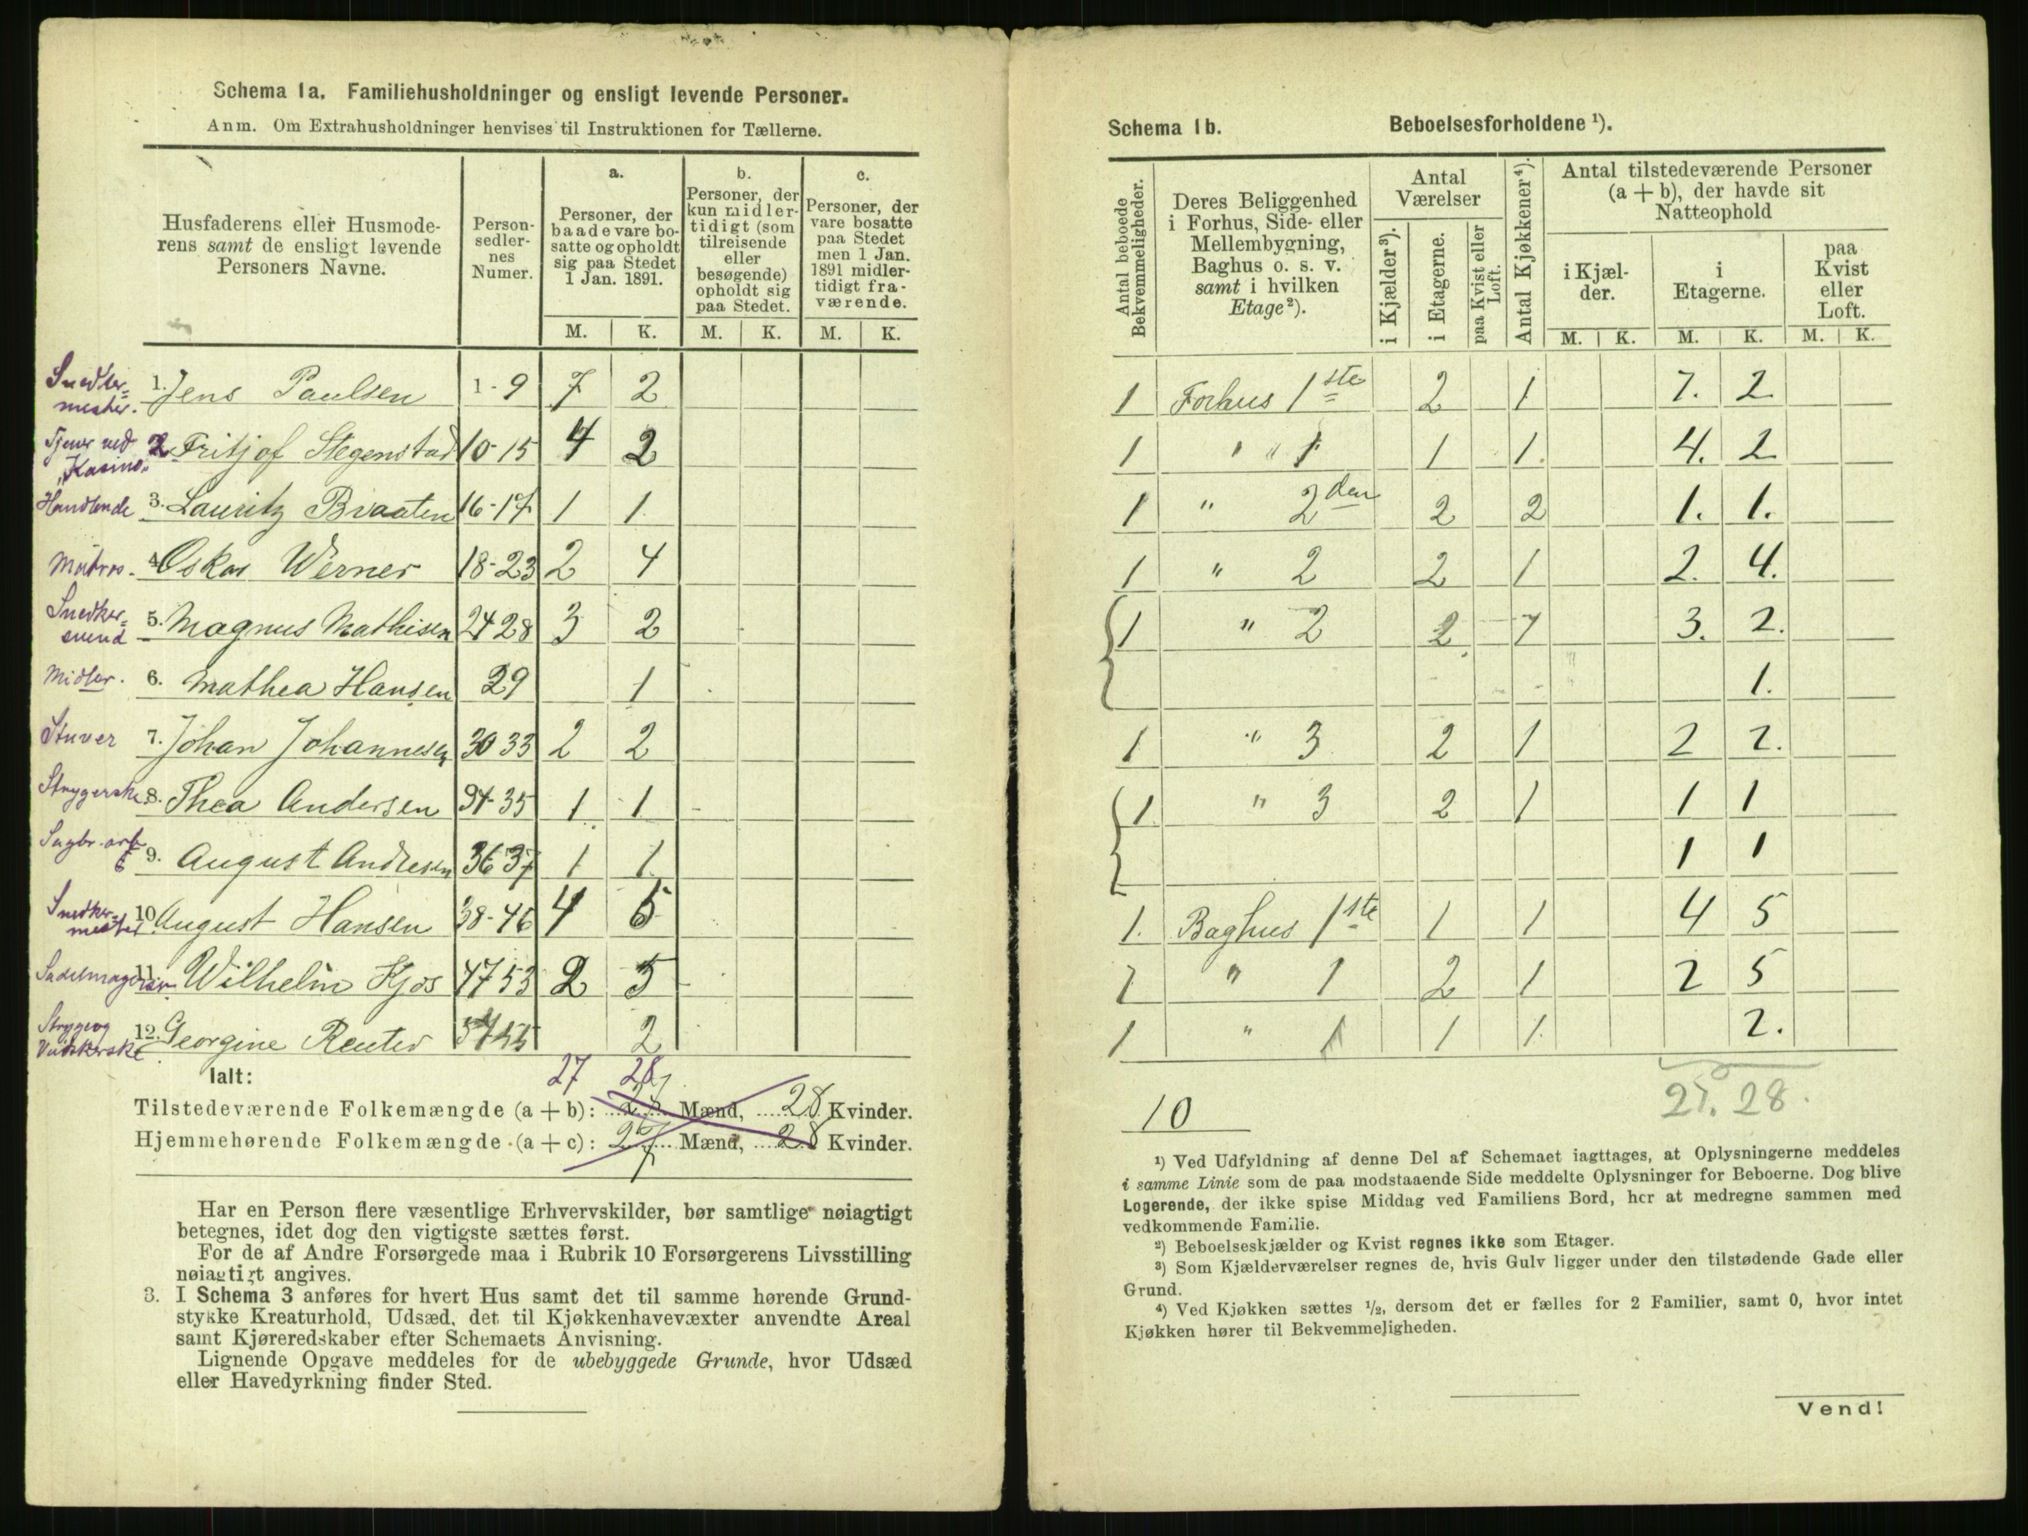 Schema 1a. Familiehusholdninger og ensligt levende Personer.
Anm. Om Extrahusholdninger henvises til Instruktionen for Tællerne.
Husfaderens eller Husmoderens samt de ensligt levende Personers Navne.
Personsedlernes Numer.
a. Personer, der baade vare bosatte og opholdt sig paa Stedet 1 Jan. 1891.
b. Personer, der kun midlertidigt (som tilreisende eller besøgende) opholdt sig paa Stedet.
c. Personer, der vare bosatte paa Stedet men 1 Jan. 1891 midlertidigt fraværende.
M. K. M. K. M. K.
Snedkermester. 1. Jens Paulsen 1-9 7 2
Tjener ved "Kasino" 2 Fritjof Stegenstad 10-15 4 2
Handlende 3. Lauritz Braaten 16-17 1 1
Matros. 4 Oskar Werner 18-23 2 4
Snedkersvend 5. Magnus Mathisen 24 28 3 2
Midler. 6. Mathea Hansen 29 1
Stuver 7. Johan Johannesen 30 33 2 2
Strygerske 8. Thea Andersen 34-35 1 1
Sagbr.arb 9. August Andresen 36 37 1 1
Snedkermester 10 August Hansen 38-46 4 5
Sadelmagersv. 11. Wilhelm Kjos 47 53 2 5
Stryge og Vaskerske 12. Georgine Reuter 54 55 2
Ialt: 27 28
Tilstedeværende Folkemængde (a + b): 27 Mænd, 28 Kvinder.
Hjemmehørende Folkemængde (a + c): 27 Mænd, 28 Kvinder.
Har en Person flere væsentlige Erhvervskilder, bør samtlige nøiagtigt
betegnes, idet dog den vigtigste sættes først.
For de af Andre Forsørgede maa i Rubrik 10 Forsørgerens Livsstilling
nøiagtigt angives.
3. I Schema 3 anføres for hvert Hus samt det til samme hørende Grund-
stykke Kreaturhold, Udsæd, det til Kjøkkenhavevæxter anvendte Areal
samt Kjøreredskaber efter Schemaets Anvisning.
Lignende Opgave meddeles for de ubebyggede Grunde, hvor Udsæd
eller Havedyrkning finder Sted.
Schema 1b. Beboelsesforholdene ¹).
Antal beboede Bekvemmeligheder.
Deres Beliggenhed i Forhus, Side- eller Mellembygning, Baghus o. s. v. samt i hvilken Etage²).
Antal Værelser
i Kjælder³). i Etagerne. paa Kvist eller Loft.
Antal Kjøkkener⁴).
Antal tilstedeværende Personer (a + b), der havde sit Natteophold
i Kjælder. i Etagerne. paa Kvist eller Loft.
M. K. M. K. M. K.
1 Forhus 1ste 2 1 7. 2
1 " " 1 1 1. 4. 2
1 " 2den 2 2 1. 1.
1 " 2 2 1 2. 4.
1 " 2 2 1 3. 2.
1.
1 " 3 2 1 2 2.
1. " 3 2 1 1 1
1 1
1. Baghus 1ste 1 1 4 5
1 " 1 2 1 2 5
1 " 1 1 1. 2.
10 27. 28.
¹) Ved Udfyldning af denne Del af Schemaet iagttages, at Oplysningerne meddeles
i samme Linie som de paa modstaaende Side meddelte Oplysninger for Beboerne. Dog blive
Logerende, der ikke spise Middag ved Familiens Bord, her at medregne sammen med
vedkommende Familie.
²) Beboelseskjælder og Kvist regnes ikke som Etager.
³) Som Kjælderværelser regnes de, hvis Gulv ligger under den tilstødende Gade eller
Grund.
⁴) Ved Kjøkken sættes ½, dersom det er fælles for 2 Familier, samt 0, hvor intet
Kjøkken hører til Bekvemmeligheden.
Vend!